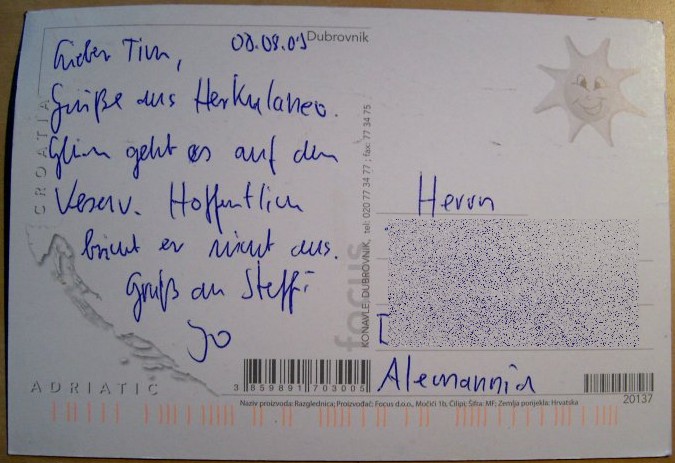 Dubrovnik
08.08.09
Lieber Tim,
Grüße aus Herkulaneo.
Gleich geht es auf den
Vesuv. Hoffentlich
bricht er nicht aus.
Gruß an Steffi
Jo
CROATIA
ADRIATIC
focus
KONAVLE, DUBROVNIK, tel: 020 77 34 77 ; fax: 77 34 75
Herrn
Alemannia
3 859891 703005
20137
Naziv proizvoda: Razglednica; Proizvođač: Focus d.o.o., Močići 1b, Čilipi; Šifra: MF; Zemlja porijekla: Hrvatska